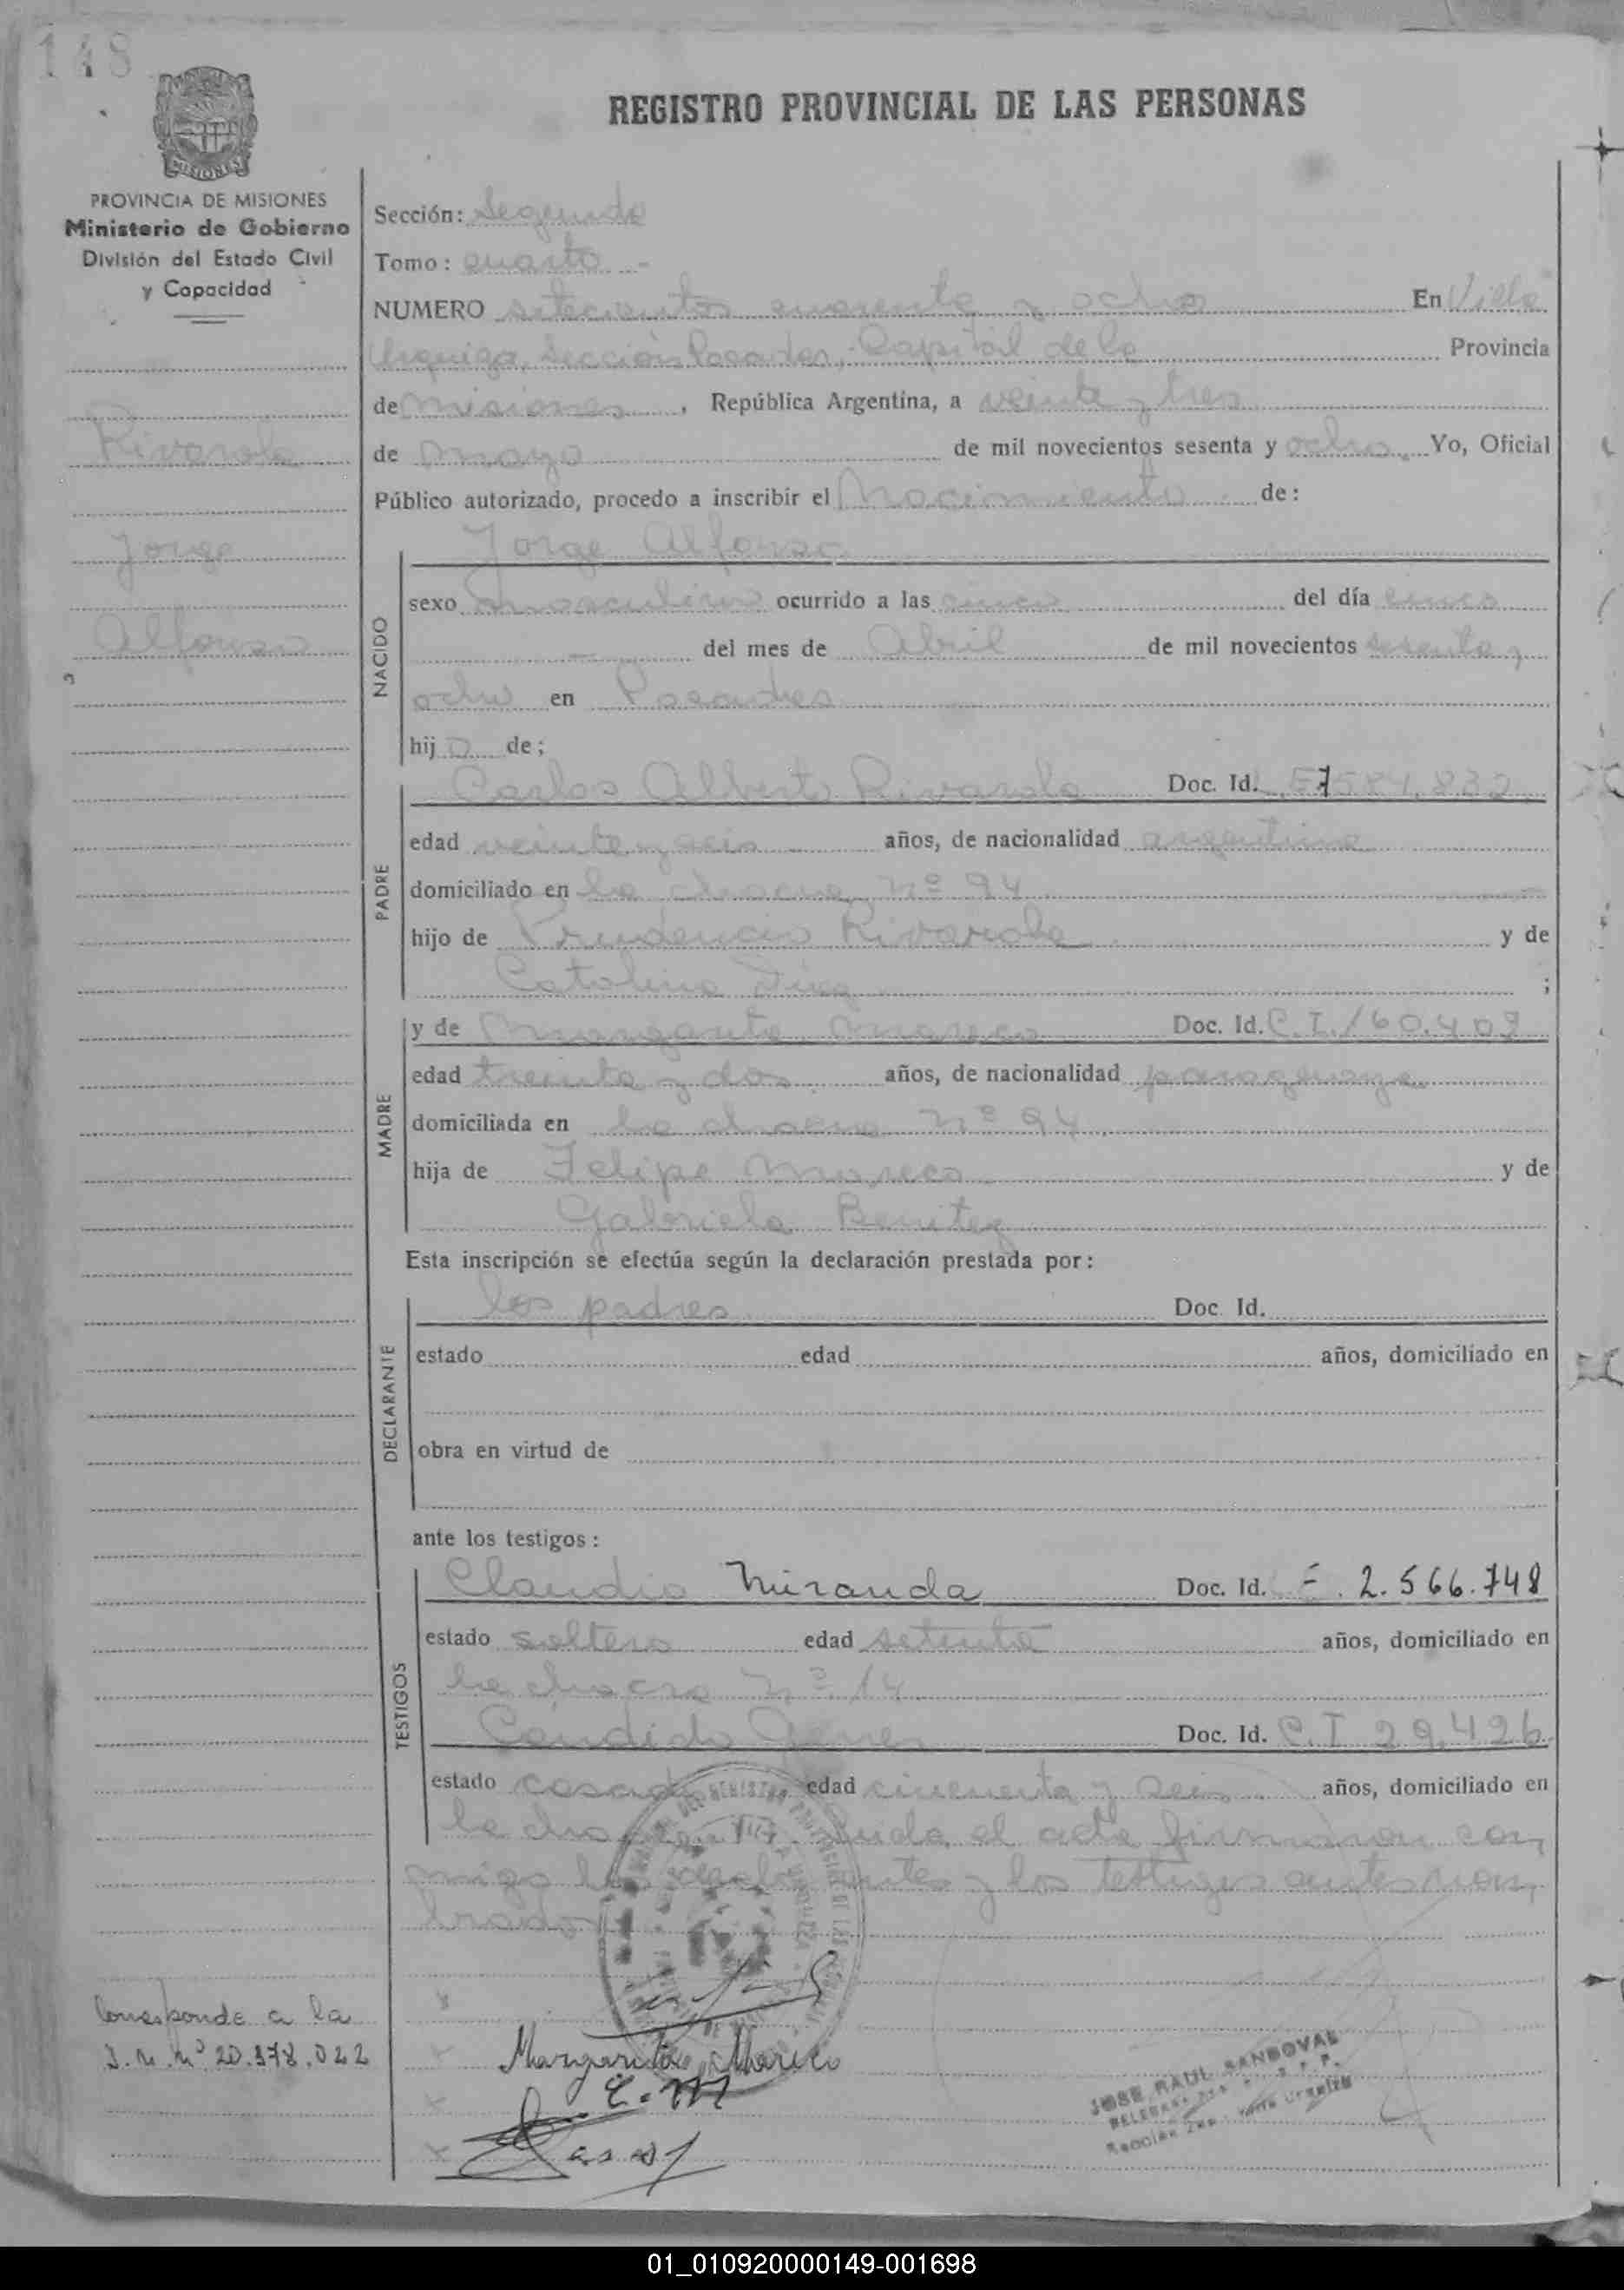 148
MISIONES
REGISTRO PROVINCIAL DE LAS PERSONAS
PROVINCIA DE MISIONES
Ministerio de Gobierno
División del Estado Civil
y Capacidad
Rivarola
Jorge
Alfonso
Sección: Segunda
Tomo: cuarto
NUMERO setecientos cuarenta y ocho En Villa
Urquiza, Sección Posadas, Capital de la Provincia
de Misiones, República Argentina, a veinte y tres
de mayo de mil novecientos sesenta y ocho. Yo, Oficial
Público autorizado, procedo a inscribir el Nacimiento de:
NACIDO
Jorge Alfonso
sexo masculino ocurrido a las cinco del día cinco
del mes de Abril de mil novecientos sesenta y
ocho en Posadas
hijo de;
PADRE
Carlos Alberto Rivarola Doc. Id. 7584.832
edad veinte y seis años, de nacionalidad argentina
domiciliado en la chacra nº 94
hijo de Prudencio Rivarola y de
Catalina ;
MADRE
y de Margarita Mareco Doc. Id. C.I. 160.409
edad treinta y dos años, de nacionalidad paraguaya
domiciliada en la chacra nº 94
hija de Felipe Mareco y de
Gabriela Benitez
Esta inscripción se efectúa según la declaración prestada por:
DECLARANTE
los padres Doc. Id.
estado edad años, domiciliado en
obra en virtud de
ante los testigos:
TESTIGOS
Claudio Miranda Doc. Id. 2.566.748
estado soltero edad setenta años, domiciliado en
la chacra nº 14
Cándido Doc. Id. C.I 29.426
estado casado edad cincuenta y seis años, domiciliado en
la Leida el acta firmaron con
migo los declarantes y los testigos antes nom
brados
Corresponde a la
I. M. Nº 20.378.022
Margarita Mareco
C. M
JOSE RAUL SANDOVAL
Sección 2da Villa Urquiza
01_010920000149-001698